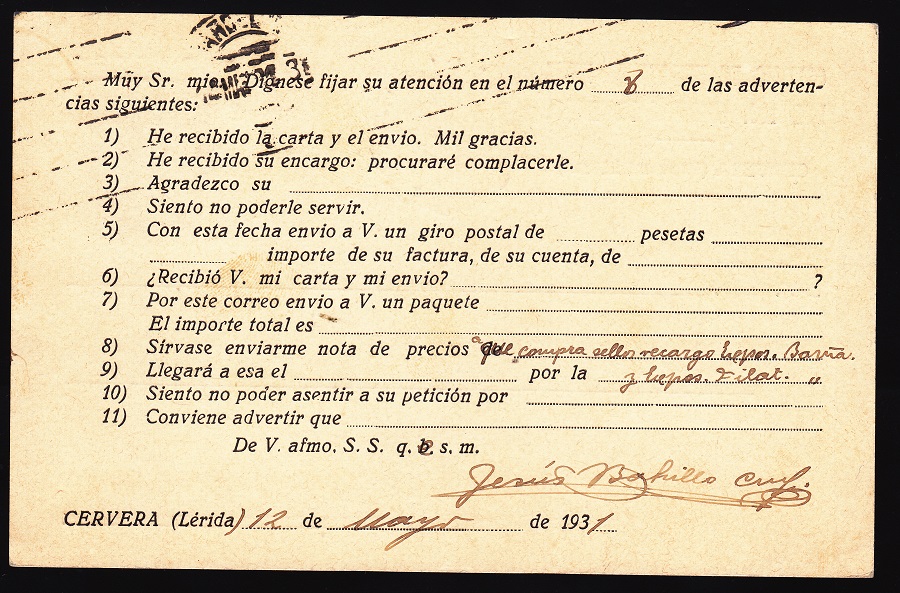 Muy Sr. mio: Dígnese fijar su atención en el número 8 de las adverten-
cias siguientes:
1) He recibido la carta y el envio. Mil gracias.
2) He recibido su encargo: procuraré complacerle.
3) Agradezco su
4) Siento no poderle servir.
5) Con esta fecha envio a V. un giro postal de pesetas
importe de su factura, de su cuenta, de
6) ¿Recibió V. mi carta y mi envio? ?
7) Por este correo envio a V. un paquete
El importe total es
8) Sírvase enviarme nota de precios a que compra sellos recargo Expos. Barna.
9) Llegará a esa el por la y Expos. Filat. "
10) Siento no poder asentir a su petición por
11) Conviene advertir que
De V. afmo. S. S. q. e. s. m.
Jesús
CERVERA (Lérida) 12 de Mayo de 1931